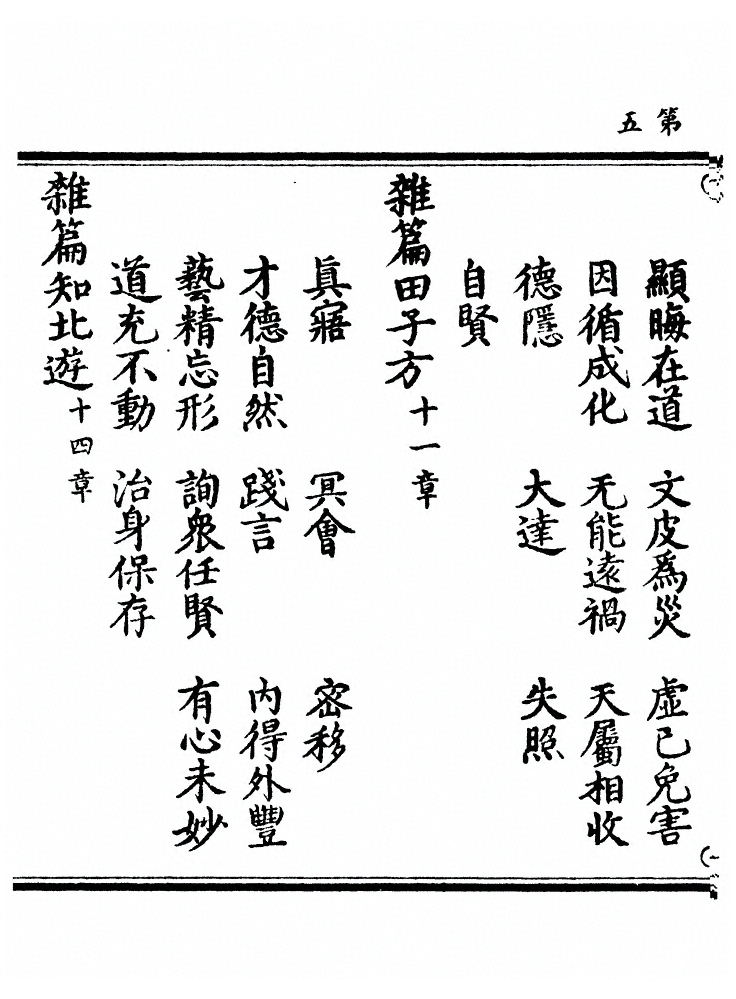 第五
顯晦在道 文皮為災 虛己免害
因循成化 无能遠禍 天屬相收
德隱 大達 失照
自賢
雜篇田子方十一章
真寤 冥會 密移
才德自然 踐言 內得外豐
藝精忘形 詢眾任賢 有心未妙
道充不動 治身保存
雜篇知北遊十四章